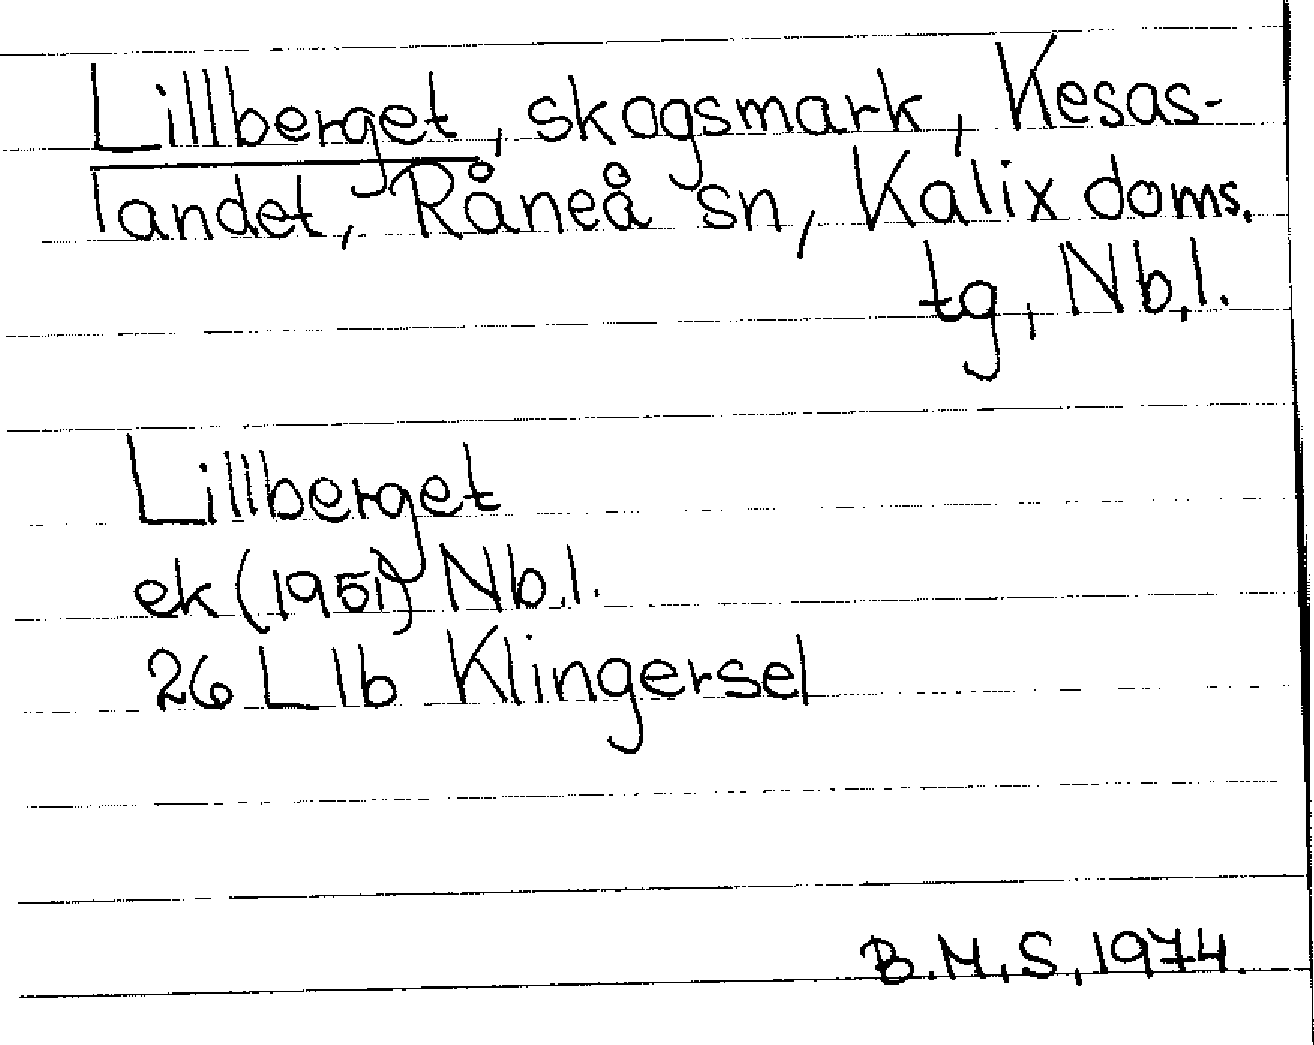 Lillberget, skogsmark, Kesas-
landet, Råneå sn, Kalix doms.
tg, Nb.l.
Lillberget
ek (1951) Nb.l.
26 L Ib Klingersel
B.M.S, 1974.